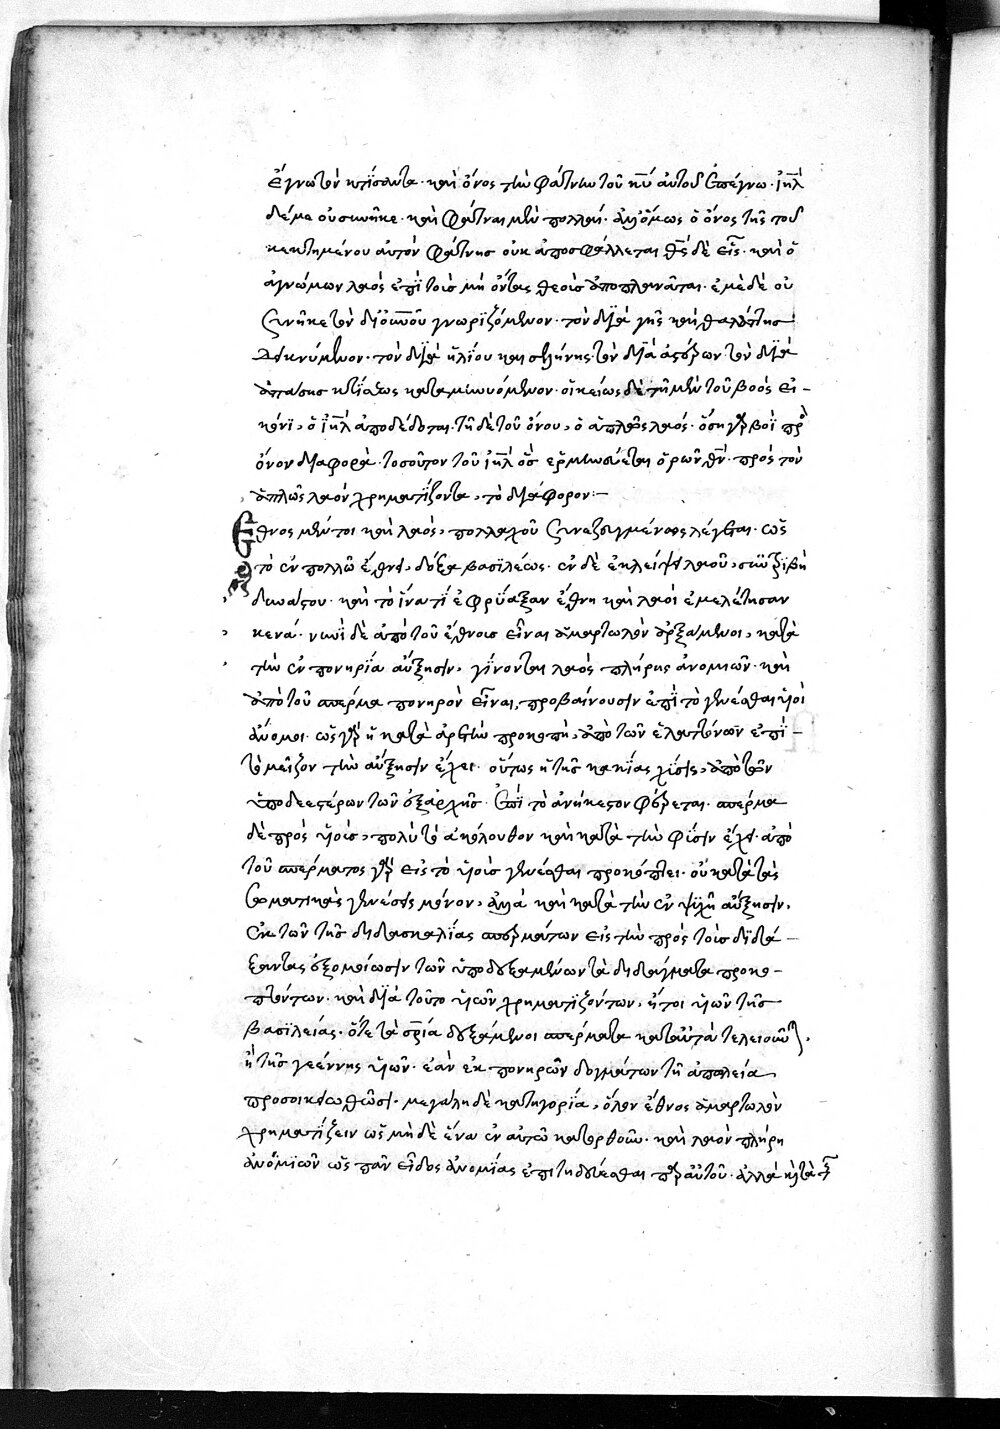 ἔγνω τὸν κτίσαντα· καὶ ὄνος τὴν φάτνην τοῦ κυ αὐτοῦ ἐπέγνω· ἰηλ
δέ με οὐ συνῆκε· καὶ φάτναι μὲν πολλαί· ἀλλ' ὅμως ὁ ὄνος τῆς τοῦ
κεκτημένου αὐτὸν φάτνης οὐκ ἀποσφάλλεται θς δὲ εἷς· καὶ ὁ
ἀγνώμων λαὸς ἐπὶ τοῖς μὴ ὄντας θεοῖς ἀποπλανᾶται· ἐμὲ δὲ οὐ
συνῆκε τὸν δι' οὐνοῦ γνωριζόμενον· τὸν διὰ γῆς καὶ θαλάττης
δεικνύμενον· τὸν διὰ ἡλίου και σελήνης· τὸν διὰ ἀστρων· τὸν διὰ
ἁπάσης κτίσεως καταμηνυόμενον· οἰκείως δὲ τῇ μὲν τοῦ βοὸς εἰ-
κόνϊ, ὁ ἰηλ ἀποδέδοται· τῇ δὲ τοῦ ὄνου, ὁ ἁπλῶς λαός· ὅση γὰρ βοῒ πρὸς
ὄνον διαφορὰ· τοσοῦτον τοῦ ἰηλ ὃς ἑρμηνεύεται ὁρῶν θν· πρὸς τὸν
ἁπλῶς λαὸν χρηματίζοντα, τὸ διάφορον:–
Ἔθνος μέντοι καὶ λαὸς, πολλαχοῦ συνεζευγμένως λέγεται· ὡς
τὸ ἐν πολλῶ ἔθνει, δόξα βασιλέως· ἐν δὲ ἐκλείψει λαοῦ, συντριβὴ
δυνάστου· καὶ τὸ ἵνα τί ἐφρύαξαν ἔθνη καὶ λαοὶ ἐμελέτησαν
κενά· νυνῒ δὲ ἀπὸ τοῦ ἔθνους εἶναι ἁμαρτωλὸν ἀρξάμενοι, κατὰ
τὴν ἐν πονηρίᾳ αὔξησιν, γίνονται λαὸς πλήρης ἀνομιῶν· καὶ
ἀπὸ τοῦ σπέρμα πονηρὸν εἶναι, προβαίνουσιν ἐπὶ τὸ γενέσθαι υἱοὶ
ἄνομοι· ὡς γὰρ ἡ κατὰ ἀρετὴν προκοπὴ, ἀπὸ τῶν ἐλαττόνων ἐπὶ-
τὸ μεῖζον τὴν αὔξησιν ἔχει· οὕτως ἡ τῆς κακίας χύσις, ἀπὸ τῶν
ὑποδεεστέρων τῶν ἐξαρχῆς· ἐπὶ τὸ ἀνήκεστον φέρεται· σπέρμα
δὲ πρὸς υἱοὺς, πολὺ τὸ ἀκόλουθον καὶ κατὰ τὴν φύσιν ἔχει· ἀπὸ
τοῦ σπέρματος γὰρ εἰς τὸ υἱοὺς γενέσθαι προκόπτει· οὐ κατὰ τὰς
σωματικὰς γενέσεις μόνον, ἀλλὰ καὶ κατὰ τὴν ἐν ψυχῇ αὔξησιν,
ἐκ τῶν τῆς διδασκαλίας σπερμάτων εἰς τὴν πρὸς τοὺς διδά-
ξαντας ἐξομοίωσιν τῶν ὑποδεξαμένων τὰ διδάγματα προκο-
πτόντων· καὶ διὰ τοῦτο υἱῶν χρηματιζόντων, ἤτοι υἱῶν τῆς
βασιλείας· ὅτε τὰ σρία δεξάμενοι σπέρματα κατ' αὐτὰ τελειωθῶ,
ἢ τῆς γεέννης υἱῶν· ἐὰν ἐκ πονηρῶν δογμάτων τῇ ἀπωλείᾳ
προσοικειωθῶσι· μεγάλη δὲ κατηγορία, ὅλον ἔθνος ἁμαρτωλὸν
χρηματίζειν ὡς μὴ δὲ ἕνα ἐν αὐτῶ κατορθοῦν· καὶ λαὸν πλήρη
ἀνομιῶν ὡς πᾶν εἶδος ἀνομίας ἐπιτηδεύεσθαι παρ' αὐτοῦ· ἀλλὰ κατὰ